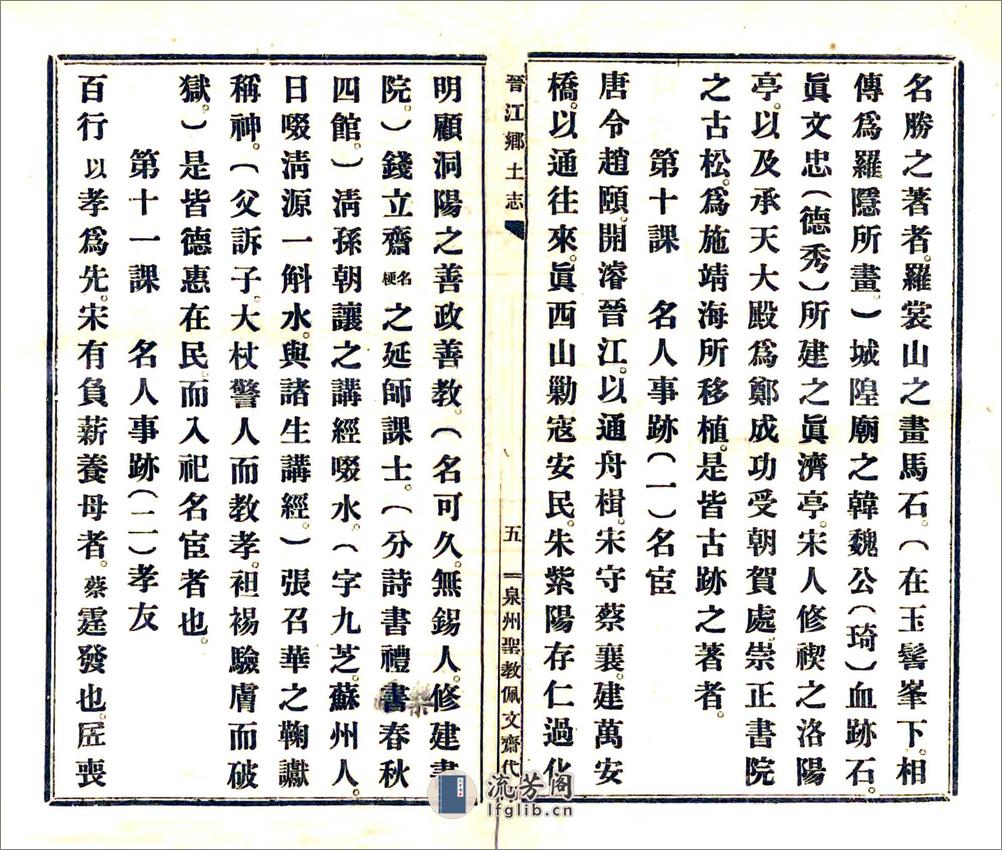 名勝之著者。羅裳山之畫馬石。(在玉髻峯下。相
傳爲羅隱所畫。)城隍廟之韓魏公(琦)血跡石。
眞文忠(德秀)所建之眞濟亭。宋人修禊之洛陽
亭。以及承天大殿爲鄭成功受朝賀處。崇正書院
之古松。爲施靖海所移植。是皆古跡之著者。
第十課 名人事跡(一)名宦
唐令趙頤。開濬晉江。以通舟楫。宋守蔡襄。建萬安
橋。以通往來。眞西山勦寇安民。朱紫陽存仁過化
晉江鄉土志
五
泉州聖教佩文齋代
明顧洞陽之善政善教。(名可久。無錫人。修建書
院。)錢立齋名梗之延師課士。(分詩書禮春秋
四館。)淸孫朝讓之講經啜水。(字九芝。蘇州人。
日啜淸源一斛水。與諸生講經。)張召華之鞠讞
稱神。(父訴子。大杖警人而教孝。袒裼驗膚而破
獄。)是皆德惠在民。而入祀名宦者也。
第十一課 名人事跡(二)孝友
百行以孝爲先。宋有負薪養母者。蔡霆發也。居喪
流芳阁
lfglib.cn